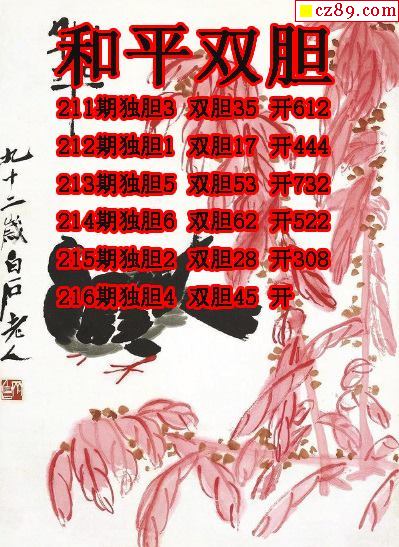 cz89.com
和平双胆
211期独胆3 双胆35 开612
212期独胆1 双胆17 开444
213期独胆5 双胆53 开732
214期独胆6 双胆62 开522
215期独胆2 双胆28 开308
216期独胆4 双胆45 开
九十二岁白石老人